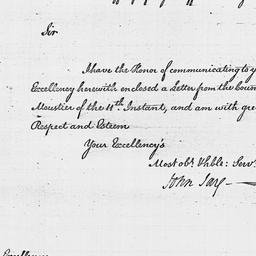 Sir
I have the Honor of communicating to y
Excellency herewith enclosed a Letter from the Coun
Moustier of the 11th Instant, and am with gre
Respect and Esteem
Your Excellency's
Most obt. & hble: Servt.
John Jay
Excellency